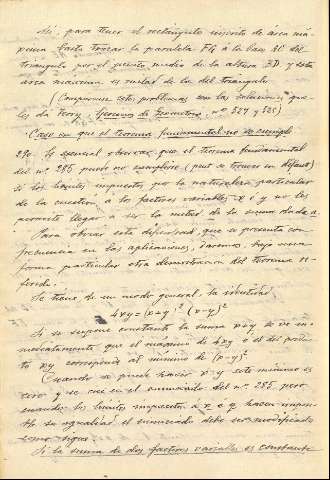 Así, para tener el rectángulo inscrito de área má-
xima basta trazar la paralela FG á la base AC del
triángulo por el punto medio de la altura BD y esta
área máxima es mitad de la del triángulo
(Compárense estos problemas con las soluciones que
les da Ferry, Ejercicios de Geometría, nos 527 y 528)
Caso en que el teorema fundamental no se cumple
290. Es esencial observar que el teorema fundamental
del nº 285 puede no cumplirse (peut se trouver en défaut)
si los límites impuestos por la naturaleza particular
de la cuestión á los factores variables x é y no les
permite llegar á ser la mitad de la suma dada a.
Para obviar esta dificultad, que se presenta con
frecuencia en las aplicaciones, daremos, bajo una
forma particular otra demostración del teorema re-
ferido.
Se tiene, de un modo general, la identidad
4xy = (x+y)² - (x-y)²
Si se supone constante la suma x+y se ve in-
mediatamente que el máximo de 4xy o el del produc-
to xy corresponde al mínimo de (x-y)²
Cuando se puede hacer x=y este mínimo es
cero y se cae en el enunciado del nº 285 pero
cuando los límites impuestos á x e y hacen impo-
sible su igualdad el enunciado debe ser modificado
como sigue:
Si la suma de dos factores variables es constante